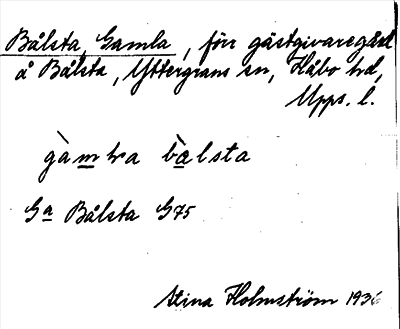 Bålsta, Gamla, förr gästgivaregård
å Bålsta, Yttergrans sn, Håbo hd,
Upps. l.
bålsta
Ga Bålsta G75
Stina Holmström 1936